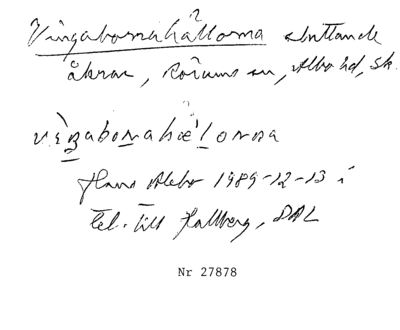 Vingabornahallorna sluttande
åkrar, Rörums sn, Albo hd, Sk.
Hans Alebo 1989-12-13 i
tel. till Hallberg, DAL
Nr 27878